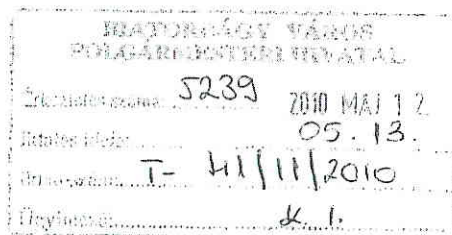 BIATORBÁGY VÁROS
POLGÁRMESTERI HIVATAL
Érkeztetés száma: 5239 2010 MÁJ 12.
Iktatás ideje: 05. 13.
T- 41/11/2010
Ügyintéző: K. I.